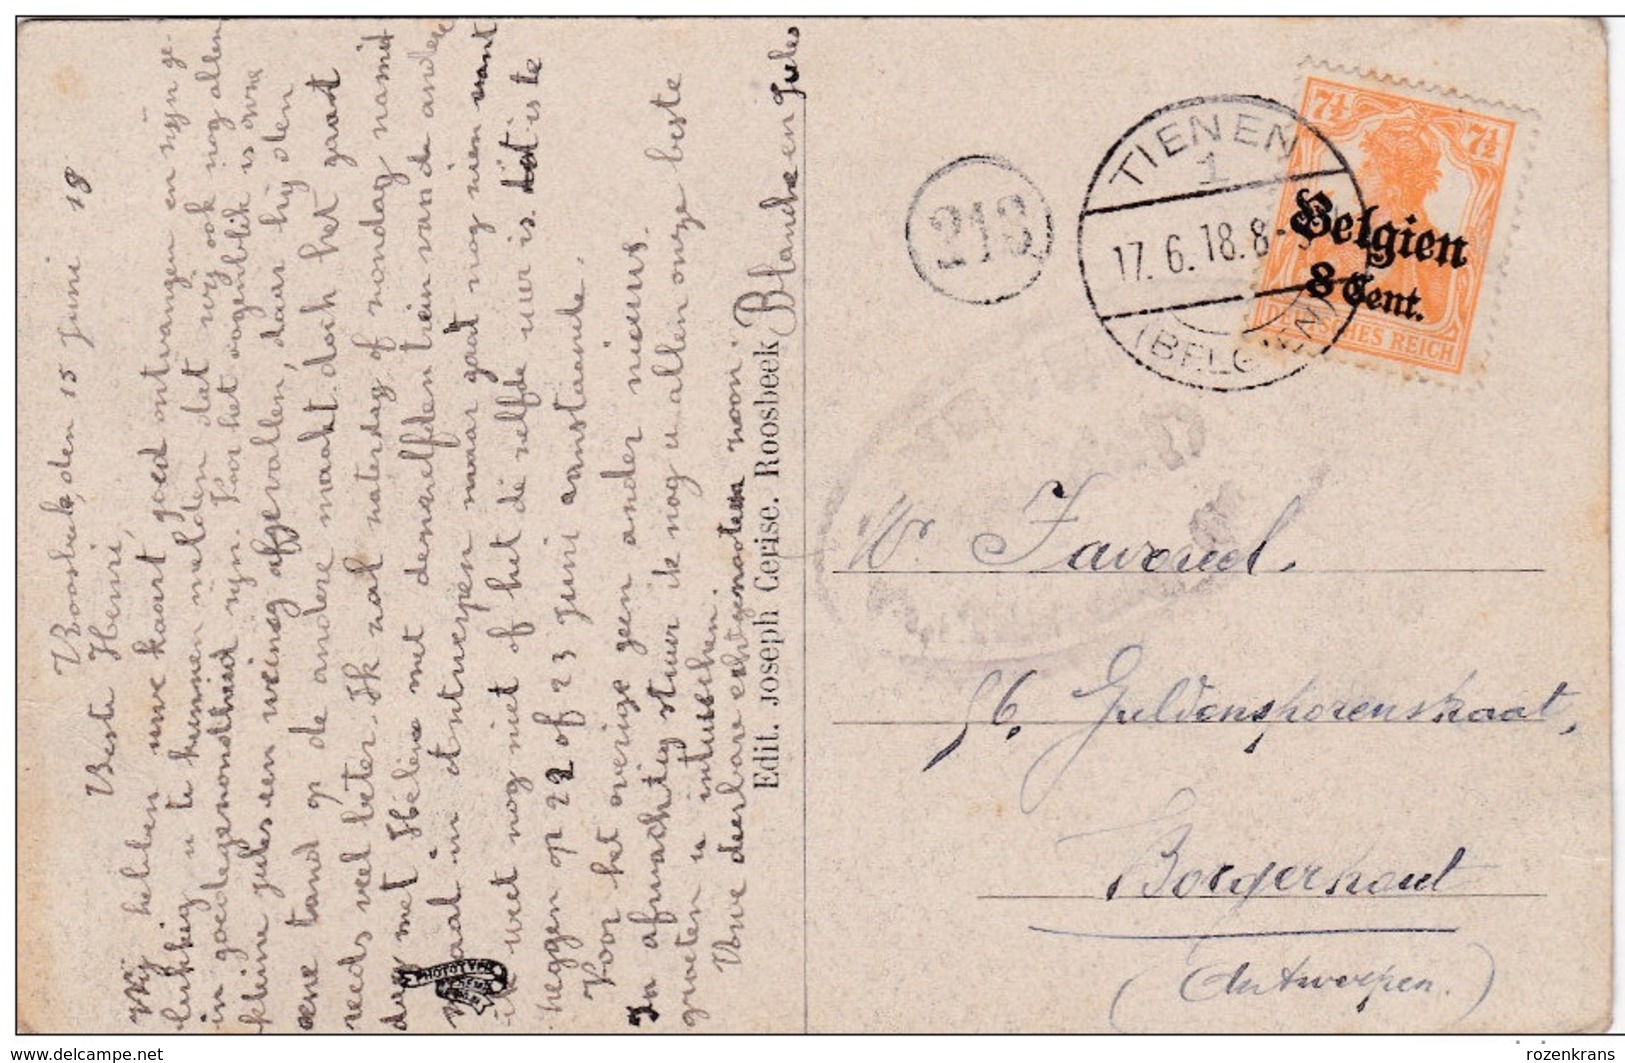 Roosbeek, den 15 Juni 18
Beste Henri,
Wij hebben uwe kaart goed ontvangen en zijn ge-
lukkig u te kunnen melden dat wij ook nog allen
in goede gezondheid zijn. Voor het oogenblik is onze
kleine jules een weinig afgevallen, daar hij den
eene tand op de andere maakt. doch het gaat
reeds veel beter. Ik zal zaterdag of zondag namid
dag met Hélène met denzelfden trein van de andere
maal in Antwerpen maar gaat nog zien want
ik weet nog niet of het de zelfde uur is. dat is te
zeggen op 22 of 23 juni aanstaande.
Voor het overige geen ander nieuws.
In afwachting stuur ik nog u allen onze beste
groeten u intusschen.
Uwe dierbare echtgenoote zoon.
Blanche en Jules
Edit. Joseph Cerise. Roosbeek
PHOTOTYPIE
213
TIENEN
1
17. 6. 18. 8-
(BELGIEN)
7½ 7½
Belgien
8 Cent.
DEUTSCHES REICH
Mr Favoreel.
56, Guldensporenstraat,
Borgerhout
(Antwerpen.)
www.delcampe.net
rozenkrans